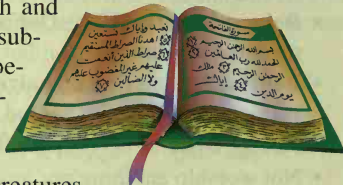 th and
sub-
pe-
-
سورة الفاتحة
بسم الله الرحمن الرحيم
الحمد لله رب العالمين
الرحمن الرحيم ملك
يوم الدين إياك
نعبد وإياك نستعين
اهدنا الصراط المستقيم
صراط الذين أنعمت
عليهم غير المغضوب عليهم
ولا الضالين
reatures